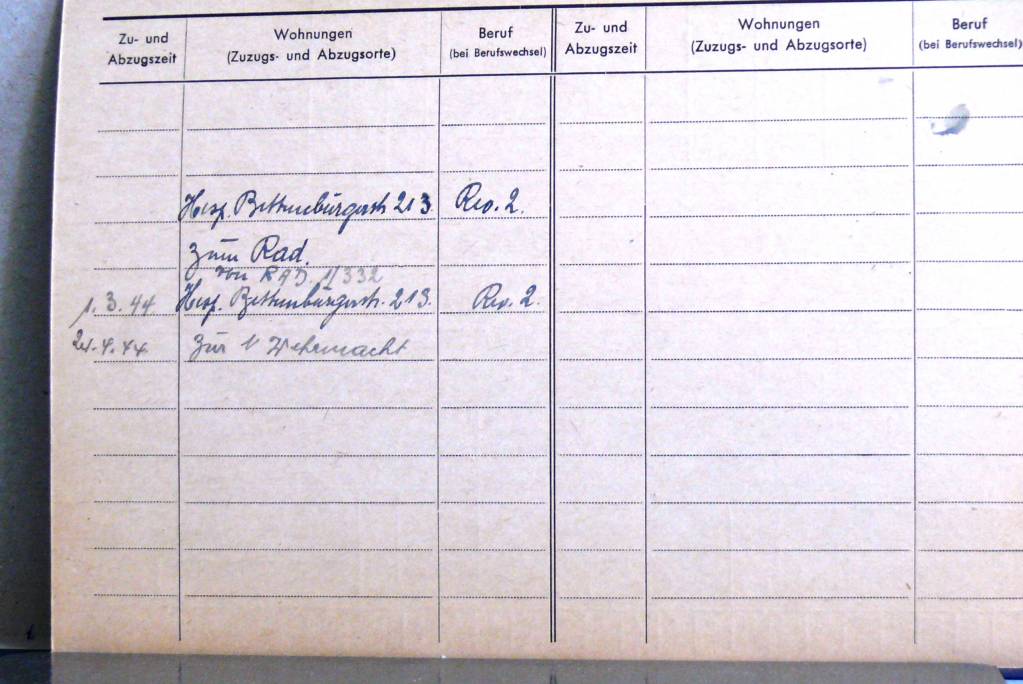 Zu- und Abzugszeit Wohnungen (Zuzugs- und Abzugsorte) Beruf (bei Berufswechsel) Zu- und Abzugszeit Wohnungen (Zuzugs- und Abzugsorte) Beruf (bei Berufswechsel)
Hesp. Bettenbürgerstr. 213. Rev. 2.
Zum Rad.
von RAD. 332
1. 3. 44 Hesp. Bettenbürgerstr. 213. Rev. 2.
4. 44 Zur Wehrmacht